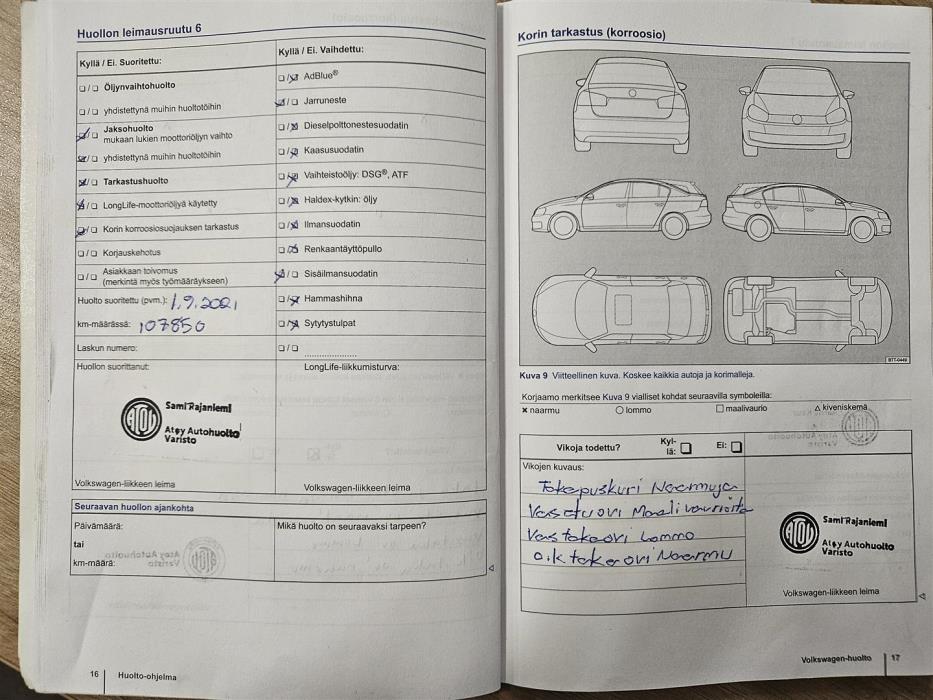 Huollon leimausruutu 6
Kyllä / Ei. Suoritettu:
Öljynvaihtohuolto
yhdistettynä muihin huoltotöihin
Jaksohuolto
mukaan lukien moottoriöljyn vaihto
yhdistettynä muihin huoltotöihin
Tarkastushuolto
LongLife-moottoriöljyä käytetty
Korin korroosiosuojauksen tarkastus
Korjauskehotus
Asiakkaan toivomus
(merkintä myös työmääräykseen)
Huolto suoritettu (pvm.): 1.9.2021
km-määrässä: 107850
Laskun numero:
Huollon suorittanut:
Sami Rajaniemi
Atoy Autohuolto
Varisto
Volkswagen-liikkeen leima
Kyllä / Ei. Vaihdettu:
AdBlue®
Jarruneste
Dieselpolttonestesuodatin
Kaasusuodatin
Vaihteistoöljy: DSG®, ATF
Haldex-kytkin: öljy
Ilmansuodatin
Renkaantäyttöpullo
Sisäilmansuodatin
Hammashihna
Sytytystulpat
LongLife-liikkumisturva:
Volkswagen-liikkeen leima
Seuraavan huollon ajankohta
Päivämäärä:
tai
km-määrä:
Mikä huolto on seuraavaksi tarpeen?
16 Huolto-ohjelma
Korin tarkastus (korroosio)
BTT-0449
Kuva 9 Viitteellinen kuva. Koskee kaikkia autoja ja korimalleja.
Korjaamo merkitsee Kuva 9 vialliset kohdat seuraavilla symboleilla:
× naarmu ○ lommo □ maalivaurio △ kiveniskemä
Vikoja todettu? Kyl-lä: Ei:
Vikojen kuvaus:
Takapuskuri Naarmuja
Vasetuovi Maalivaurioita
Vas takaovi Lommo
Oik takaovi Naarmu
Sami Rajaniemi
Atoy Autohuolto
Varisto
Volkswagen-liikkeen leima
Volkswagen-huolto 17